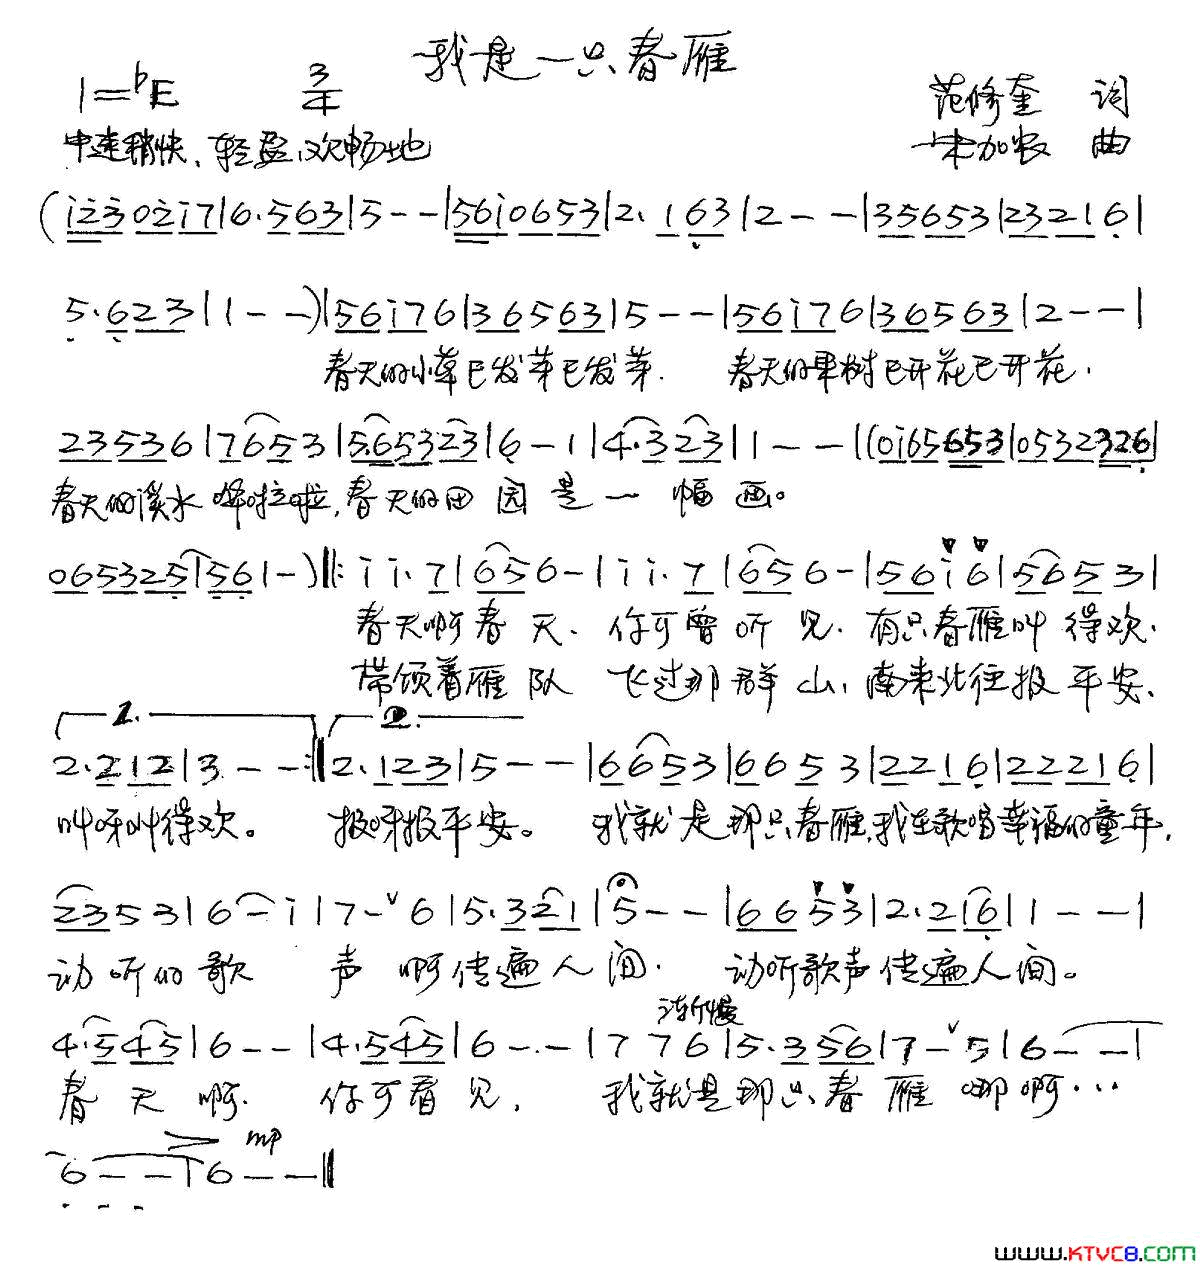 我是一只春雁
1=♭E 3/4 范修奎 词
中速稍快、轻盈、欢畅地 宋加农 曲
(i̇2̇3̇ 02̇i̇7|6.563|5--|56i̇0653|2.163|2---|35653|23216|
5.623|1--)|56i̇76|365653|5--|56i̇76|365653|2--|
春天的小草已发芽已发芽. 春天的果树已开花已开花.
23536|7653|5.65323|6-1|4.323|1---|(0i̇65653|0532326|
春天的溪水哗啦啦,春天的田园是一幅画。
065325|561-)‖:i̇i̇.7|656-|i̇i̇.7|656-|56i̇6|56531|
春天啊春天. 你可曾听见. 有只春雁叫得欢.
带领着雁队 飞过那群山, 南来北往报平安、
1. 2.
2.212|3--:‖2.123|5---|6653|6653|2216|22216|
叫呀叫得欢。 报呀报平安。 我就是那只春雁,我在歌唱幸福的童年,
23531|6-i̇|7-ˇ6|5.321|5--|6653|2.216|1--|
动听的歌声啊传遍人间. 动听歌声传遍人间。
渐慢
4.545|6--|4.545|6--|776|5.356|7-ˇ5|6--|
春天啊. 你可看见, 我就是那只春雁 哪啊···
> mp
6--|6--‖
www.KTVC8.com